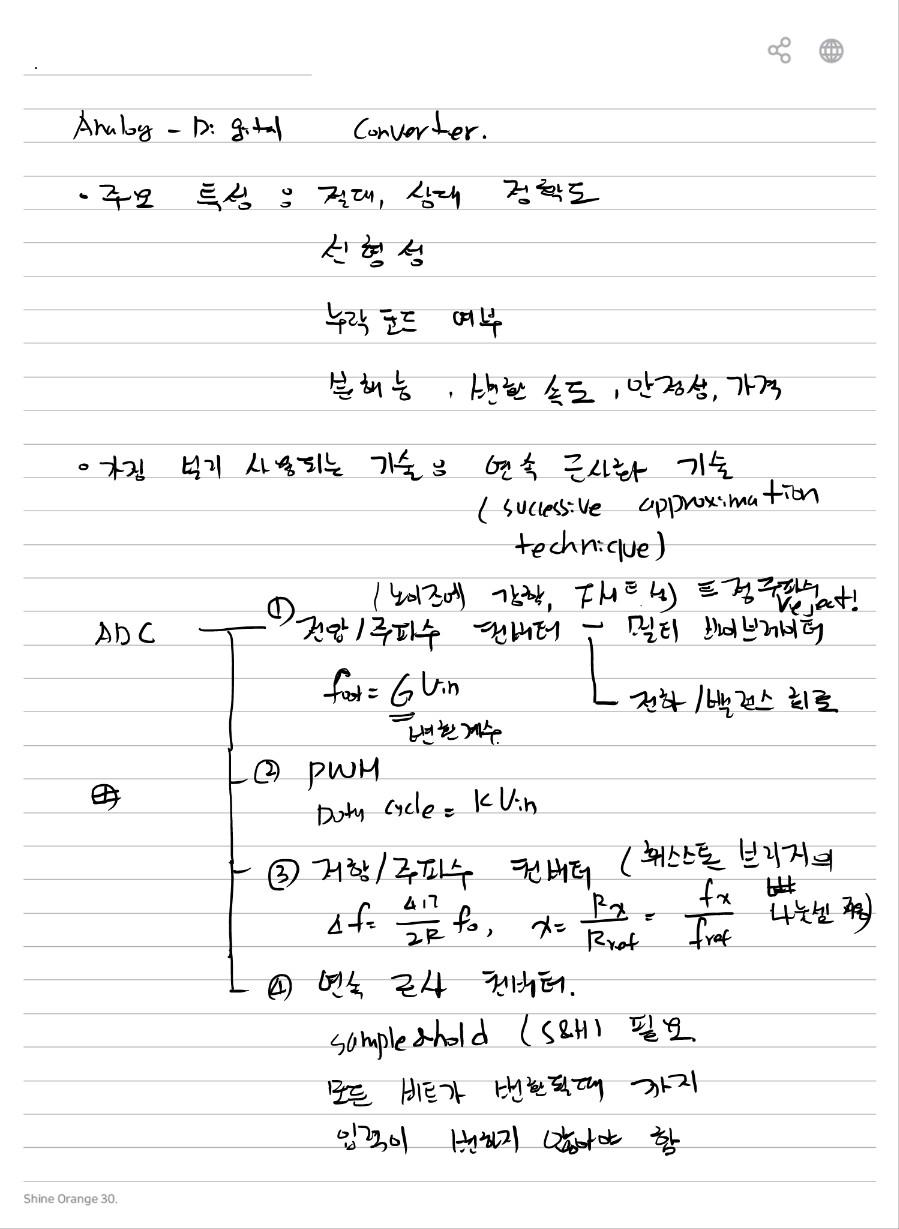 Analog - Digital Converter.
• 주요 특성 : 절대, 상대 정확도
선형성
누락 코드 여부
분해능, 변환 속도, 안정성, 가격
• 가장 널리 사용되는 기술 : 연속 근사화 기술
(successive approximation
technique)
(노이즈에 강함, ) 특정주파수
reject!
ADC ① 전압/주파수 컨버터 - 멀티 바이브레이터
fout = G Vin
전하/밸런스 회로
변환계수.
② PWM
Duty cycle = K Vin
③ 저항/주파수 컨버터 (휘스스톤 브리지의
Δf = ΔR/2R f₀, x = Rx/Rref = fx/fref 나눗셈 )
④ 연속 근사 컨버터.
sample&hold (S&H) 필요
모든 비트가 변환될때 까지
입력이 변하지 않아야 함
Shine Orange 30.